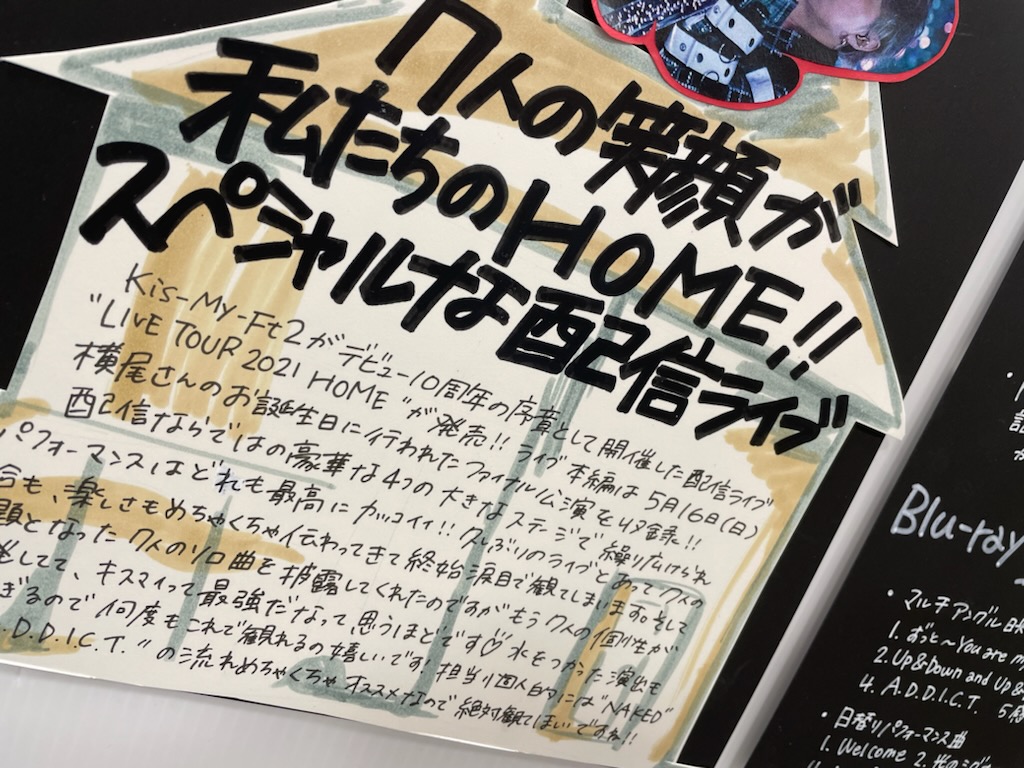 7人の笑顔が
私たちのHOME!!
スペシャルな配信ライブ
Kis-My-Ft2がデビュー10周年の序章として開催した配信ライブ
"LIVE TOUR 2021 HOME"が発売!! ライブ本編は5月16日(日)
横尾さんのお誕生日に行われたファイナル公演を収録!!
配信ならではの豪華な4つの大きなステージで繰り広げられ
パフォーマンスはどれも最高にカッコイイ!! 久しぶりのライブとあって7人の
も、楽しさもめちゃくちゃ伝わってきて終始涙目で観てしまいます。そして
題となった7人のソロ曲を披露してくれたのですがもう7人の個性が
してて、キスマイって最強だなって思うほどです♡水をつかった演出も
ぎるので何度もこれで観れるの嬉しいです! 担当り個人的には"NAKED"
.D.D.I.C.T."の流れめちゃくちゃオススメなので絶対観てほしいですね!!
Blu-ray
・マルチアングル映
1. ずっと〜You are m
2. Up&Down and Up&
4. A.D.D.I.C.T. 5
・日替りパフォーマンス曲
1. Welcome 2. 光のシグナ